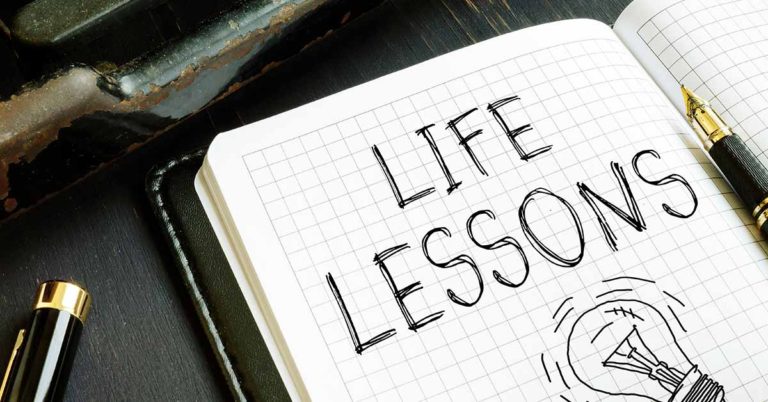 LIFE
LESSONS